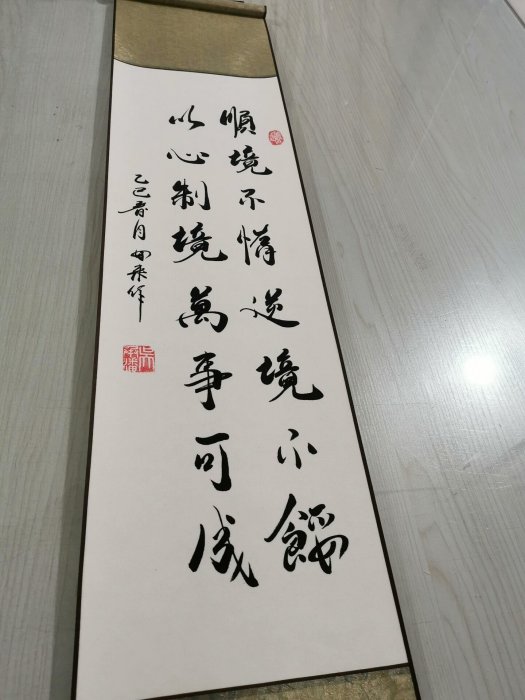 順境不惰逆境不餒
以心制境萬事可成
乙巳春月